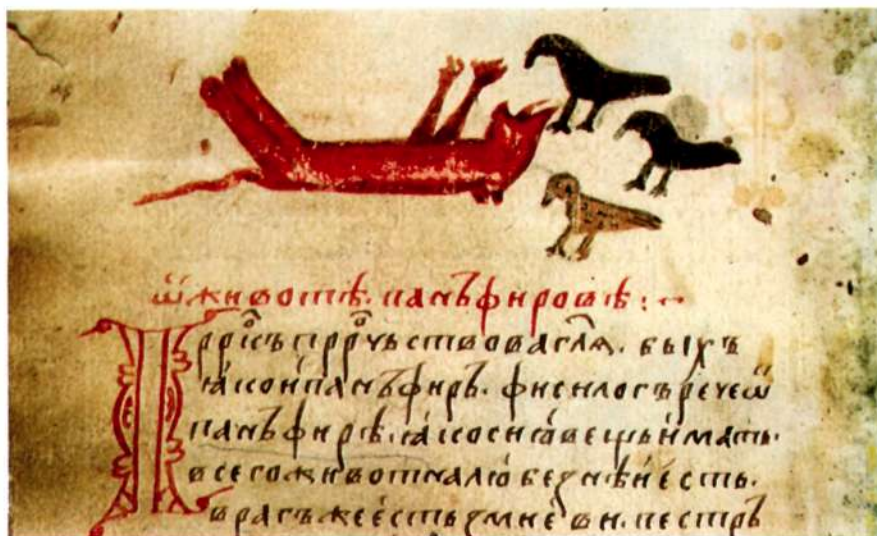 ѿ животѣ. панъфировѣ :~
Прⷪ҇ркъ прⷪ҇рчьствова гл҃ѧ. быхъ
ꙗко и панъфиръ. фисилогъ рече ѿ
панъфирѣ. ꙗко си вещь имать.
всего живот
врагъ же есть змиеви. пестръ